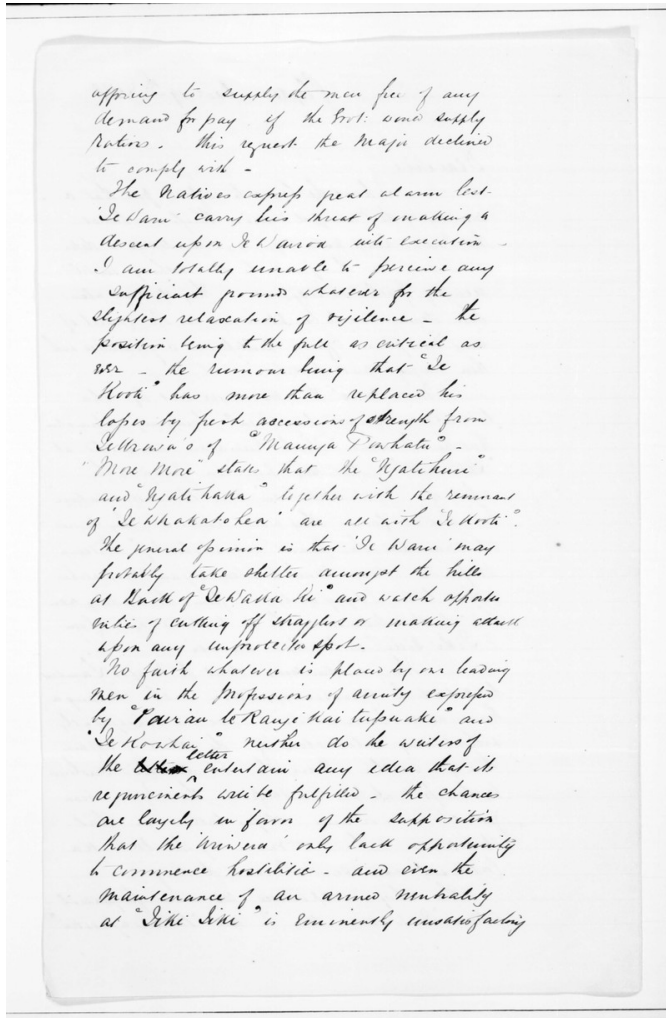 offering to supply the men free of any
demand for pay if the Govt: would supply
Rations. this request the Major declined
to comply with -
The Natives express great alarm lest
"Te Waru" carry his threat of making a
descent upon Te Wairoa into execution -
I am totally unable to perceive any
sufficient grounds whatever for the
slightest relaxation of vigilence - the
position being to the full as critical as
ever - the rumour being that "Te
Kooti" has more than replaced his
losses by fresh accessions of strength from
of "Maunga Powhatu" -
"More More" states that the "Ngatihuri"
and "Ngatihaka" together with the remnant
of "Te Whakatohea" are all with "Te Kooti".
The general opinion is that "Te Waru" may
probably take shelter amongst the hills
at Back of "Te Waka Ki" and watch opportu
nities of cutting off stragglers or making
upon any unprotected spot.
No faith whatever is placed by our leading
men in the Professions of amity expressed
by "Paerau te Rangi Kaitupuake" and
"Te Kowhai" neither do the writers of
the letter entertain any idea that its
requirements will be fulfilled - the chances
are largely in favor of the supposition
that the "Uriwera" only lack opportunity
to commence hostilitie - and even the
maintenance of an armed neutrality
at "Tiki Tiki" is eminently unsatisfactory